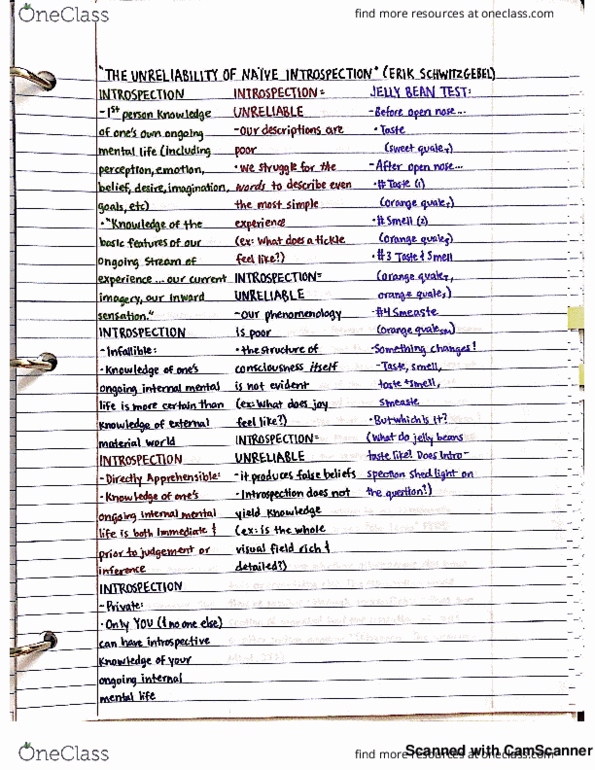 OneClass
find more resources at oneclass.com
"THE UNRELIABILITY OF NAÏVE INTROSPECTION" (ERIK SCHWITZGEBEL)
INTROSPECTION
-1st person knowledge
of one's own ongoing
mental life (including
perception, emotion,
belief, desire, imagination,
goals, etc)
•"Knowledge of the
basic features of our
ongoing stream of
experience... our current
imagery, our inward
sensation."
INTROSPECTION
-Infallible:
•Knowledge of one's
ongoing internal mental
life is more certain than
knowledge of external
material world
INTROSPECTION
-Directly Apprehensible:
•Knowledge of one's
ongoing internal mental
life is both immediate &
prior to judgement or
inference
INTROSPECTION
-Private:
•Only YOU (& no one else)
can have introspective
knowledge of your
ongoing internal
mental life
INTROSPECTION=
UNRELIABLE
-our descriptions are
poor
•we struggle for the
words to describe even
the most simple
experience
(ex: What does a tickle
feel like?)
INTROSPECTION=
UNRELIABLE
-our phenomenology
is poor
•the structure of
consciousness itself
is not evident
(ex: What does joy
feel like?)
INTROSPECTION=
UNRELIABLE
-it produces false beliefs
•Introspection does not
yield knowledge
(ex: is the whole
visual field rich &
detailed?)
JELLY BEAN TEST:
-Before open nose...
•Taste
(sweet quale)
-After open nose...
•# Taste (1)
(orange quale)
•# Smell (2)
(orange quale)
•#3 Taste & Smell
(orange quale,
orange quale)
•#4 Smeaste
(orange quale)
-Something changes!
-Taste, smell,
taste + smell,
smeaste
•But which is it?
(What do jelly beans
taste like? Does Intro-
spection shed light on
the question?)
OneClass
find more resources at oneclass.com
Scanned with CamScanner